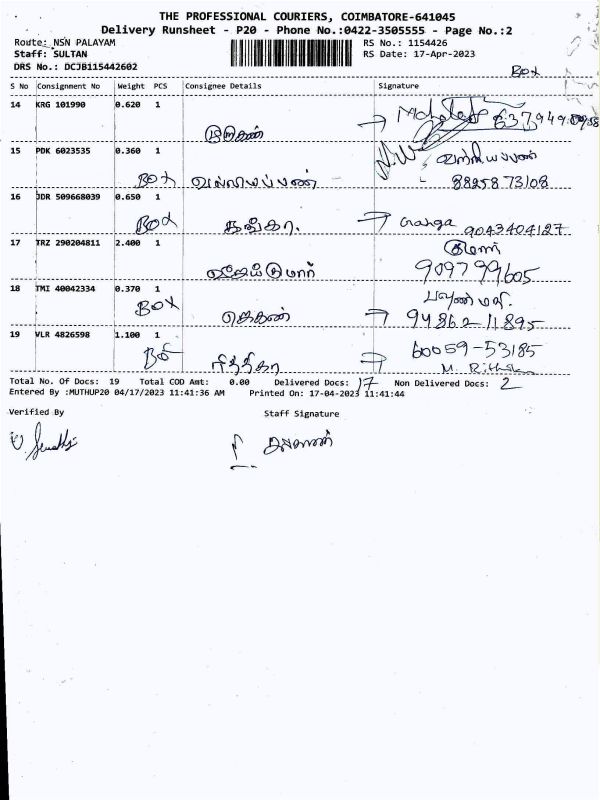 THE PROFESSIONAL COURIERS, COIMBATORE-641045
Delivery Runsheet - P20 - Phone No.:0422-3505555 - Page No.:2
Route: NSN PALAYAM RS No.: 1154426
Staff: SULTAN RS Date: 17-Apr-2023
DRS No.: DCJB115442602
Box
S No Consignment No Weight PCS Consignee Details Signature
14 KRG 101990 0.620 1
முருகன் →
15 PDK 6023535 0.360 1
Box 88258 73108
16 JDR 509668039 0.650 1
Box கங்கா. → Ganga 9043404127
17 TRZ 290204811 2.400 1 குமார்
விஜய்குமார் 9097799605
18 TMI 40042334 0.370 1
BOX → 94862 11895
19 VLR 4826598 1.100 1 60059-53185
ரித்திகா → M. Rithika
Total No. Of Docs: 19 Total COD Amt: 0.00 Delivered Docs: 17 Non Delivered Docs: 2
Entered By :MUTHUP20 04/17/2023 11:41:36 AM Printed On: 17-04-2023 11:41:44
Verified By Staff Signature